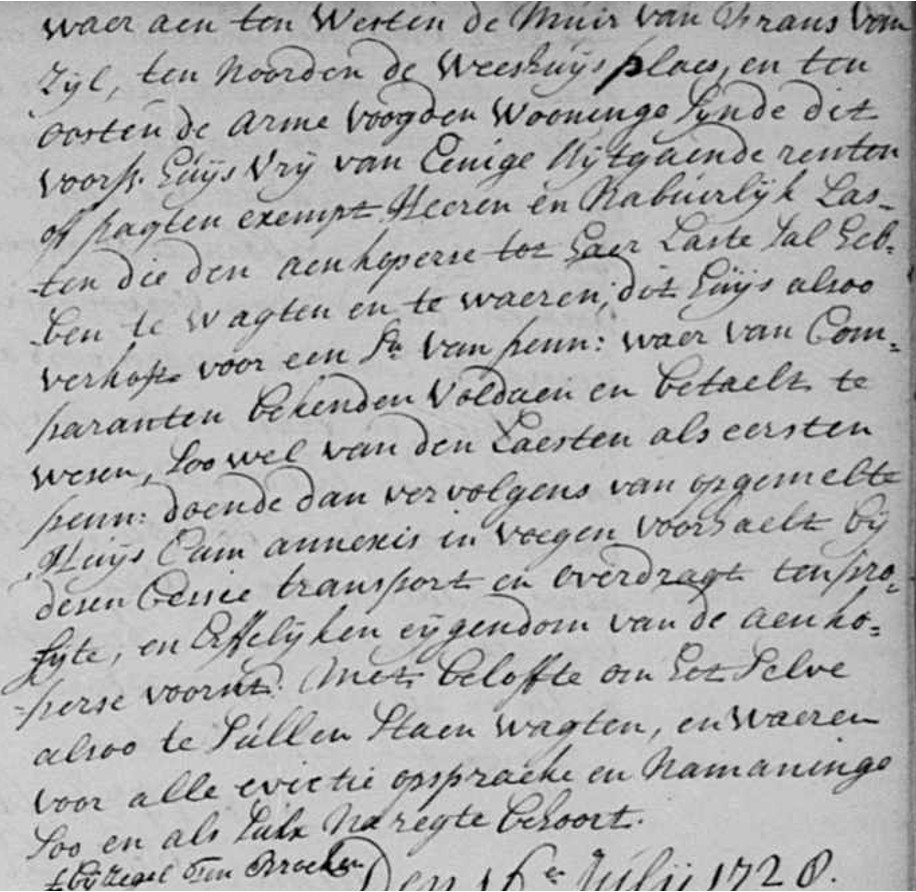 waer aen ten Westen de Muir van Frans van
Zijl, ten Noorden de Weeshuijs plaes, en ten
oosten de Arme Voogden Wooninge Sijnde dit
voors. Huijs Vrij van Eenige Uijtgaende renten
of pagten exempt Heeren en Nabuerlijk Las-
ten die den aenkoperse tot Haer Laste Sal Heb-
ben te wagten en te waeren; dit Huijs alsoo
verkoft voor een Sa. van penn: waer van Com-
paranten bekenden Voldaen en betaelt te
wesen, Soo wel van den Laesten als eersten
penn: doende dan vervolgens van opgemelte
Huijs Cum annexis in voegen voorhaelt bij
desen Cessie transport en overdragt ten pro-
fyte, en Erffelijken eijgendom van de aenko-
perse voornt. Met beloffte om Het Selve
alsoo te Sullen Staen wagten, en Waeren
voor alle evictie opspraeke en Namaninge
Soo en als Sulx Na regte behoort.
Den 16en Julij 1728.